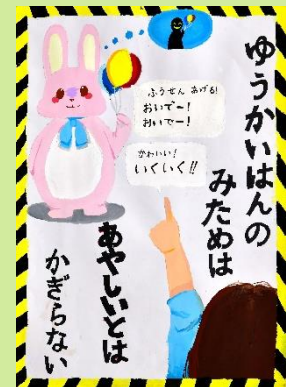 ゆうかいはんの
みためは
あやしいとは
かぎらない
ふうせん あげる!
おいで〜!
おいでー!
かわいい!
いくいく!!